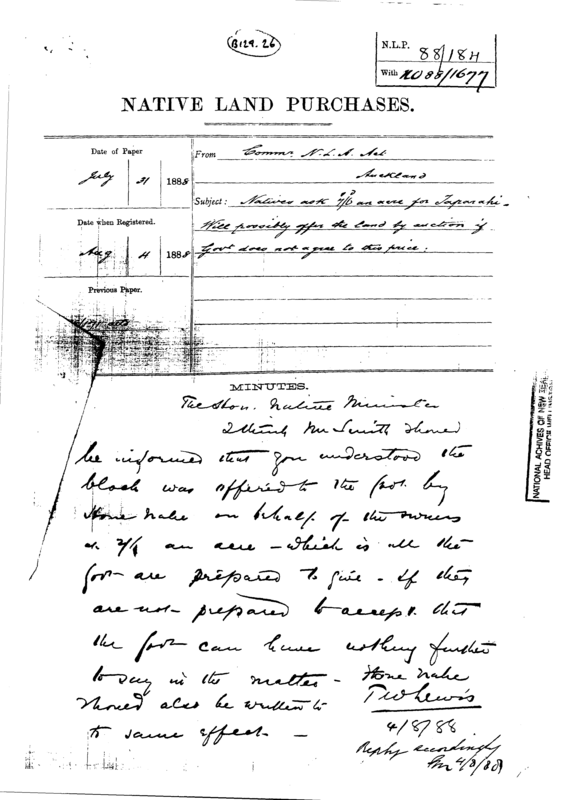 B129.26
N.L.P. 88/184
With NO 88/1677
NATIVE LAND PURCHASES.
Date of Paper
July 31 1888
From Commr. N.L.A. Act
Auckland
Subject: Natives ask 7/6 an acre for Taparahi -
Date when Registered.
Will possibly offer the land by auction if
Aug 4 1888
Govt does not agree to this price:
Previous Paper.
MINUTES.
The Hon. Native Minister
I think Mr Smith should
be informed that you understood the
block was offered to the Govt. by
Hone Nahe on behalf of the owners
an acre - which is all the
Govt are prepared to give - If they
are not prepared to accept that
the Govt can have nothing further
to say in the matter - Hone Nahe
should also be written to
to same effect. -
TW Lewis
4/8/88
Reply accordingly
4/8/88
NATIONAL ACHIVES OF NEW ZEAL
HEAD OFFICE WELLINGTON